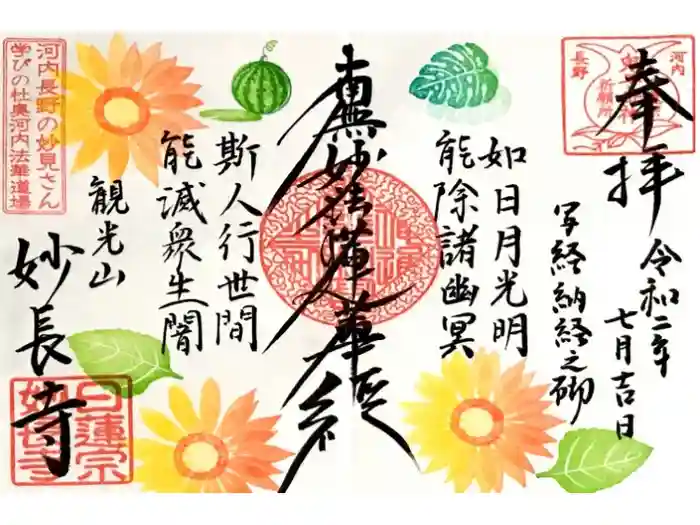 奉拝
河内
長野
祈願所
令和二年
七月吉日
写経納経之砌
如日月光明
能除諸幽冥
南無妙法蓮華経
斯人行世間
能滅衆生闇
観光山
妙長寺
河内長野の妙見さん
学びの杜奥河内法華道場
日蓮宗
妙長寺